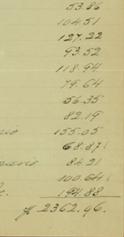 53.86
104.51
127.22
93.52
118.94
79.64
56.35
82.19
155.05
68.87
84.21
100.64
194.88
$ 2362.96.